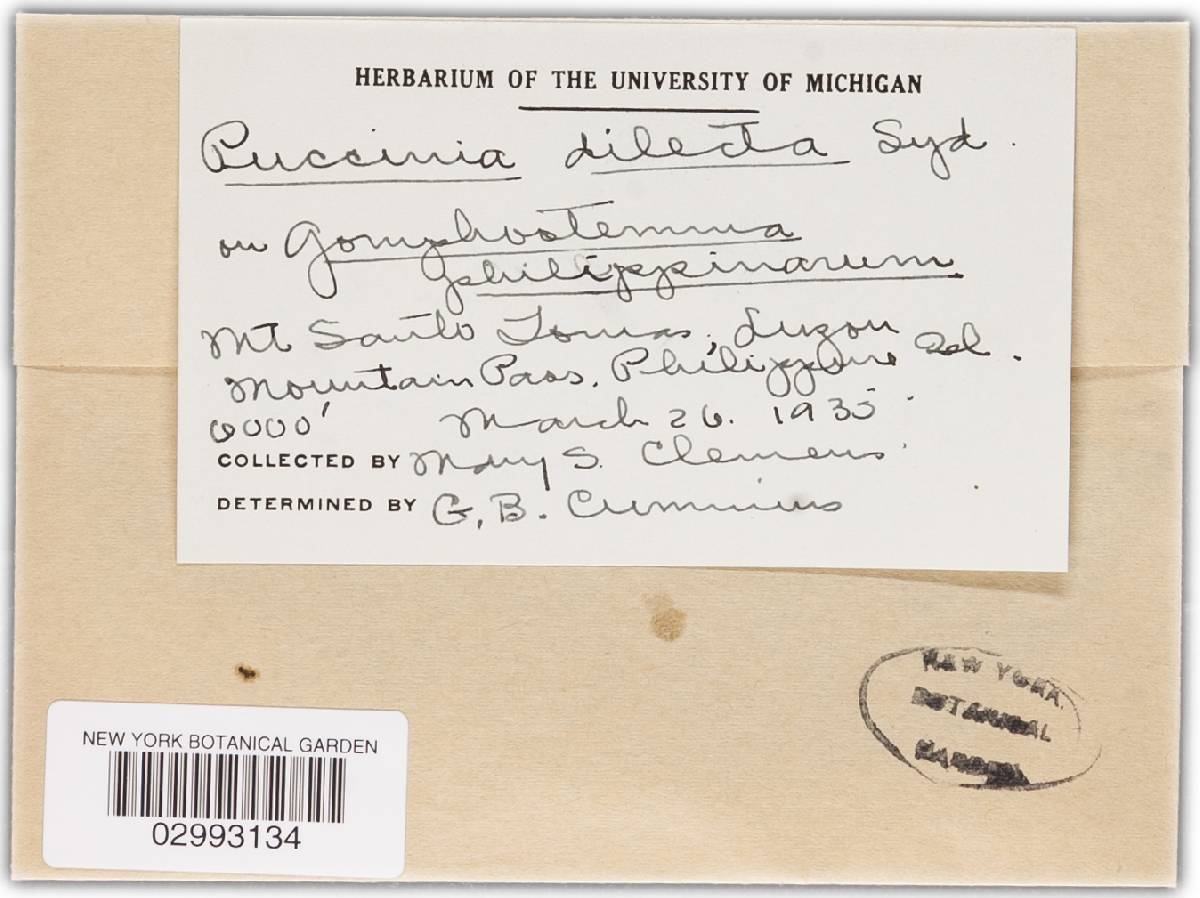 HERBARIUM OF THE UNIVERSITY OF MICHIGAN
Puccinia dilecta Syd.
on Gomphostemma
philippinarum
Mt Santo Tomas, Luzon
Mountain Pass, Philippine Isl.
6000' March 26. 1935
COLLECTED BY Mary S. Clemens
DETERMINED BY G. B. Cummins
NEW YORK
BOTANICAL
GARDEN
NEW YORK BOTANICAL GARDEN
02993134